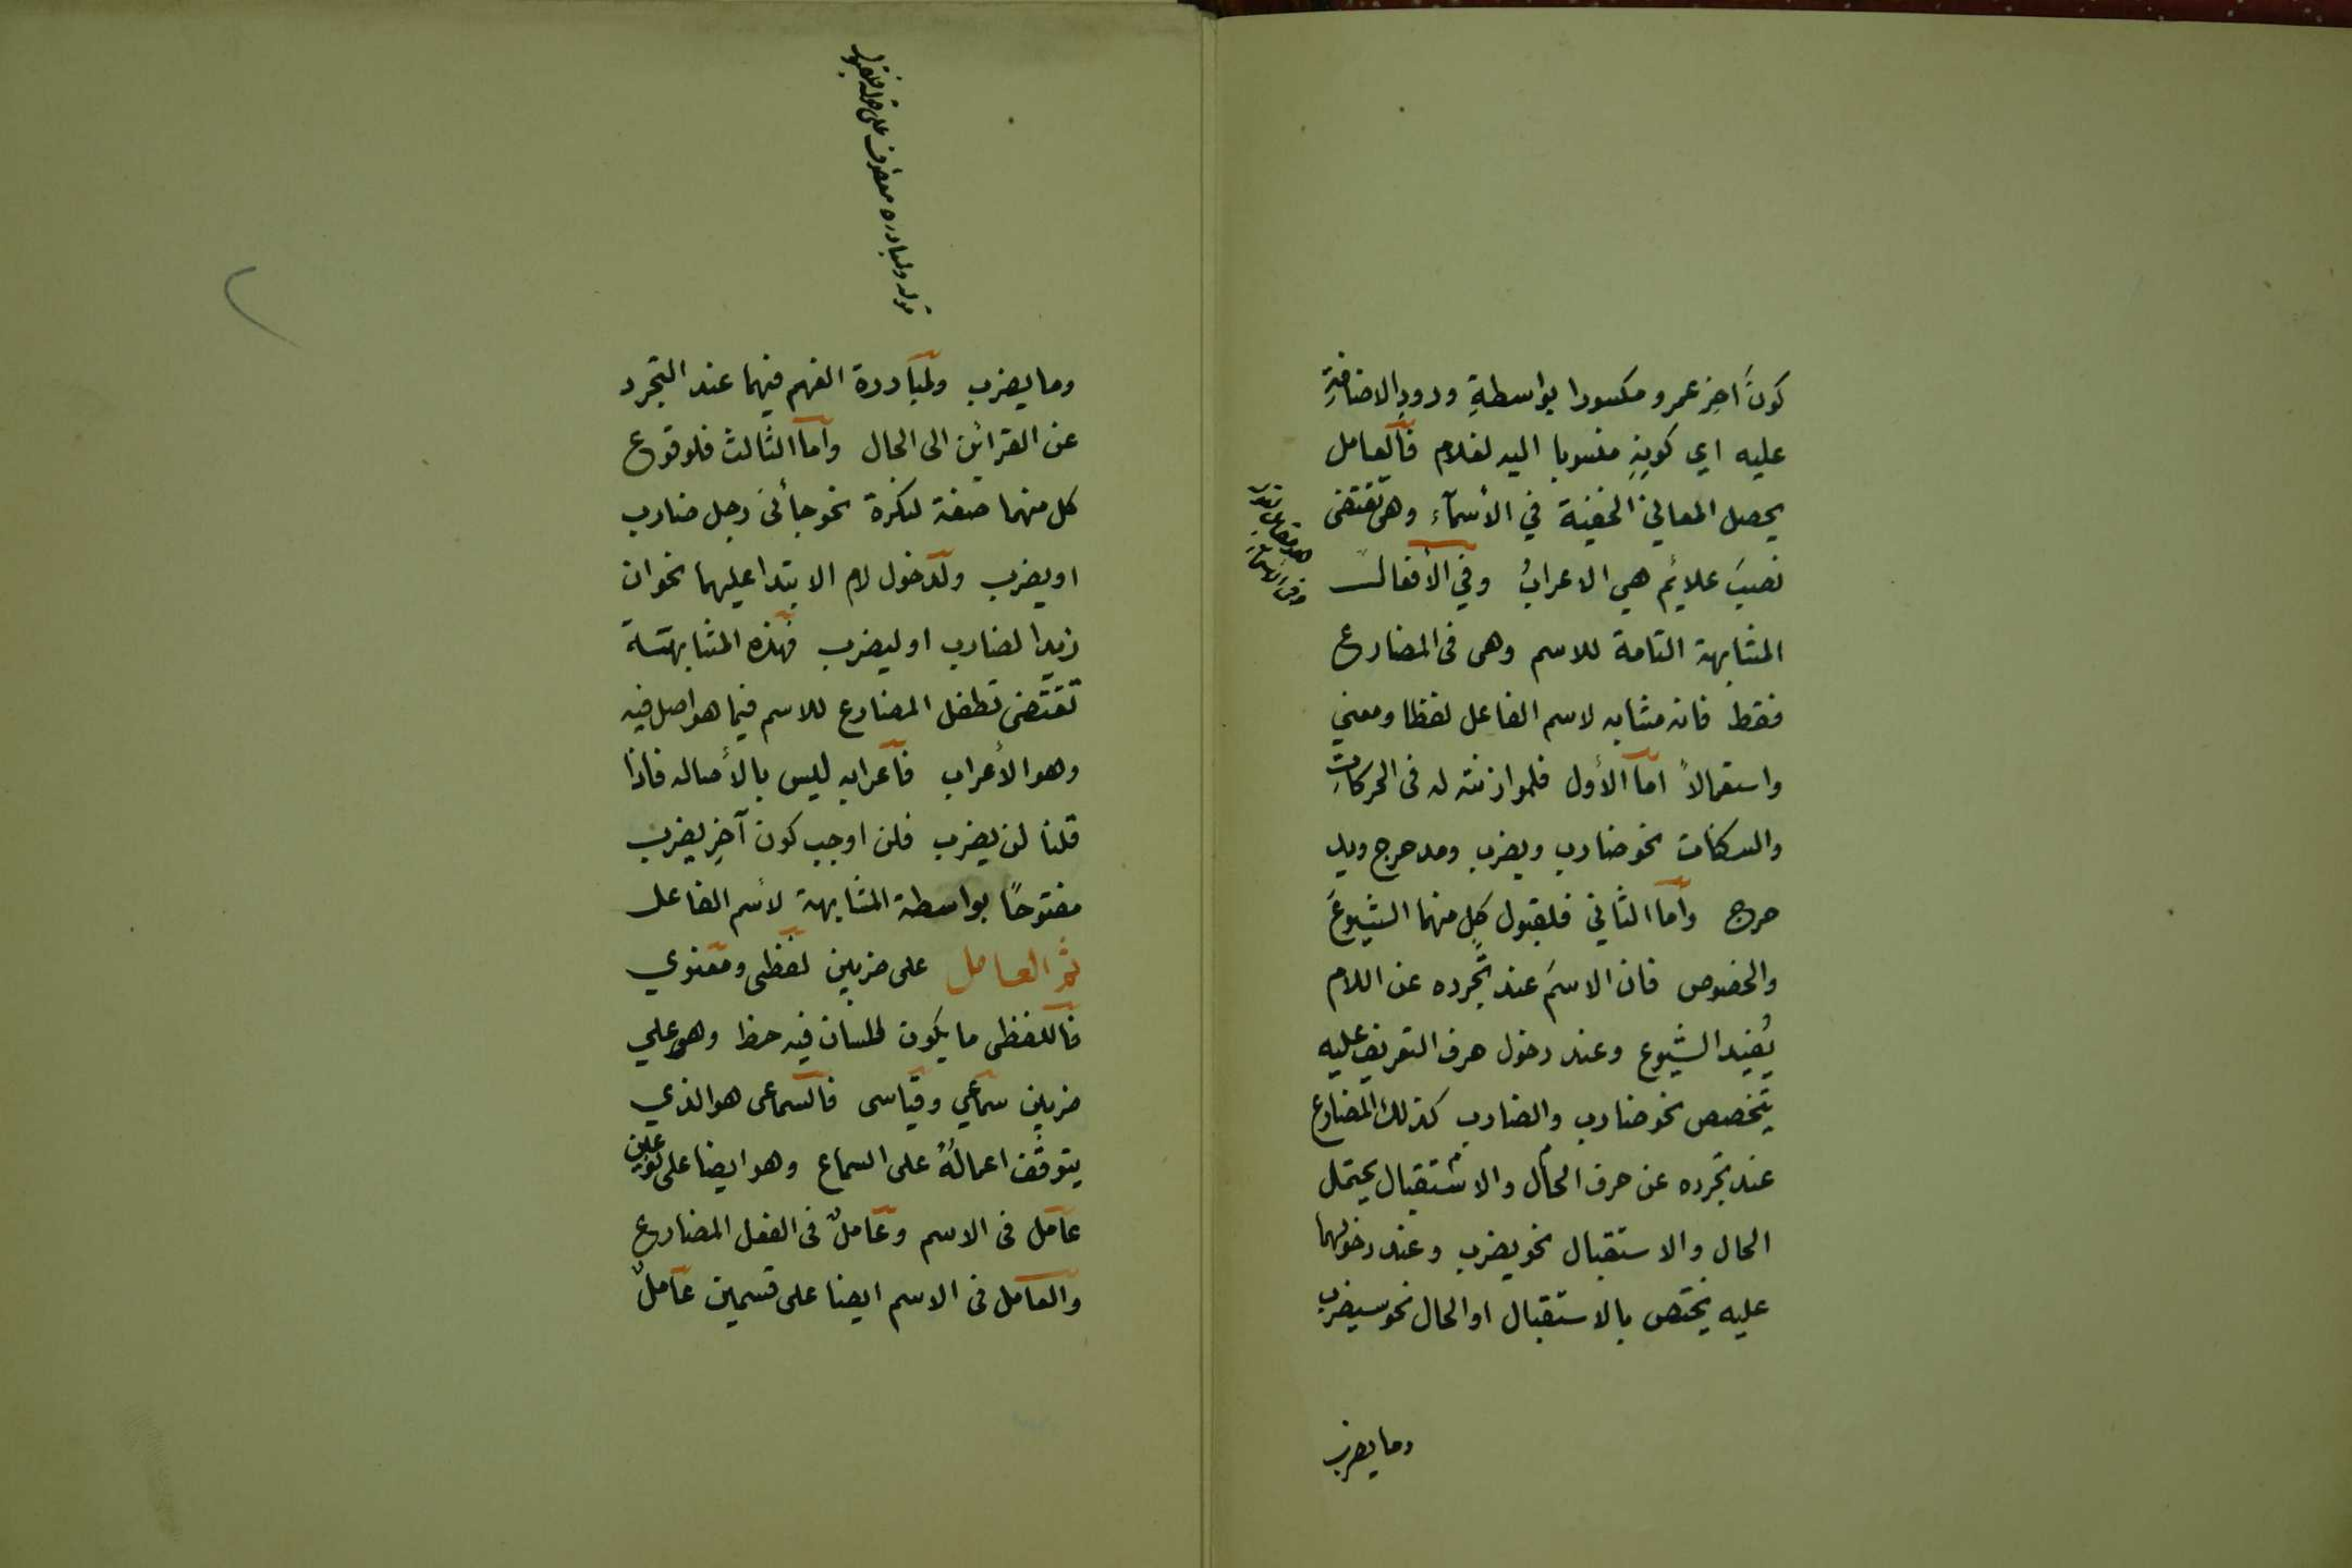 كونَ آخِر عمرو مكسورا بواسطةِ ورودِ الاضافةِ
عليه اي كونِهِ منسوبا اليه لغلام فالعامل
يحصل المعاني الخفية في الأسمآء وهى تقتضى
نصبَ علائمٍ هي الاعرابُ وفي الأفعال
المشابهة التامة للاسم وهى فى المضارع
فقط فانه مشابه لاسم الفاعل لفظا ومعنى
واستعمالاً امّا الأول فلموازنته له فى الحركاتِ
والسكنات نحو ضارب ويضرب ومدحرج ويد
حرج وأما الثاني فلقبول كلٍ منهما الشيوعَ
والخصوص فان الاسمَ عند تجرده عن اللام
يُفيد الشيوع وعند دخول حرف التعريف عليه
يتخصص نحو ضارب والضارب كذلك المضارع
عند تجرده عن حرف الحال والاستقبال يحتمل
الحال والاستقبال نحو يضرب وعند دخولهما
عليه يختص بالاستقبال او الحال نحو سيضرب
وما يضرب
قوله ولمبادره معطوف على قوله فلقبول
وما يضرب ولمبادرة الفهم فيهما عند التجرد
عن القرائن الى الحال وأما الثالث فلوقوع
كل منهما صفة لنكرة نحو جأنى رجل ضارب
او يضرب ولدخول لام الابتدا عليهما نحو ان
زيدا لضارب او ليضرب فهذه المشابهة
تقتضى تطفل المضارع للاسم فيما هو اصل فيه
وهو الأعراب فاعرابه ليس بالأصاله فاذا
قلنا لن يضرب فلن اوجب كون آخِر يضرب
مفتوحًا بواسطة المشابهة لأسم الفاعل
ثمّ العامل على ضربين لفظى ومعنوي
فاللفظى ما يكون للسان فيه حظ وهو علي
ضربين سماعي وقياسى فالسماعى هو الذي
يتوقف اعمالُهُ على السماع وهو ايضا على نوعين
عامل فى الاسم وعاملٌ فى الفعل المضارع
والعامل فى الاسم ايضا على قسمين عاملٌ